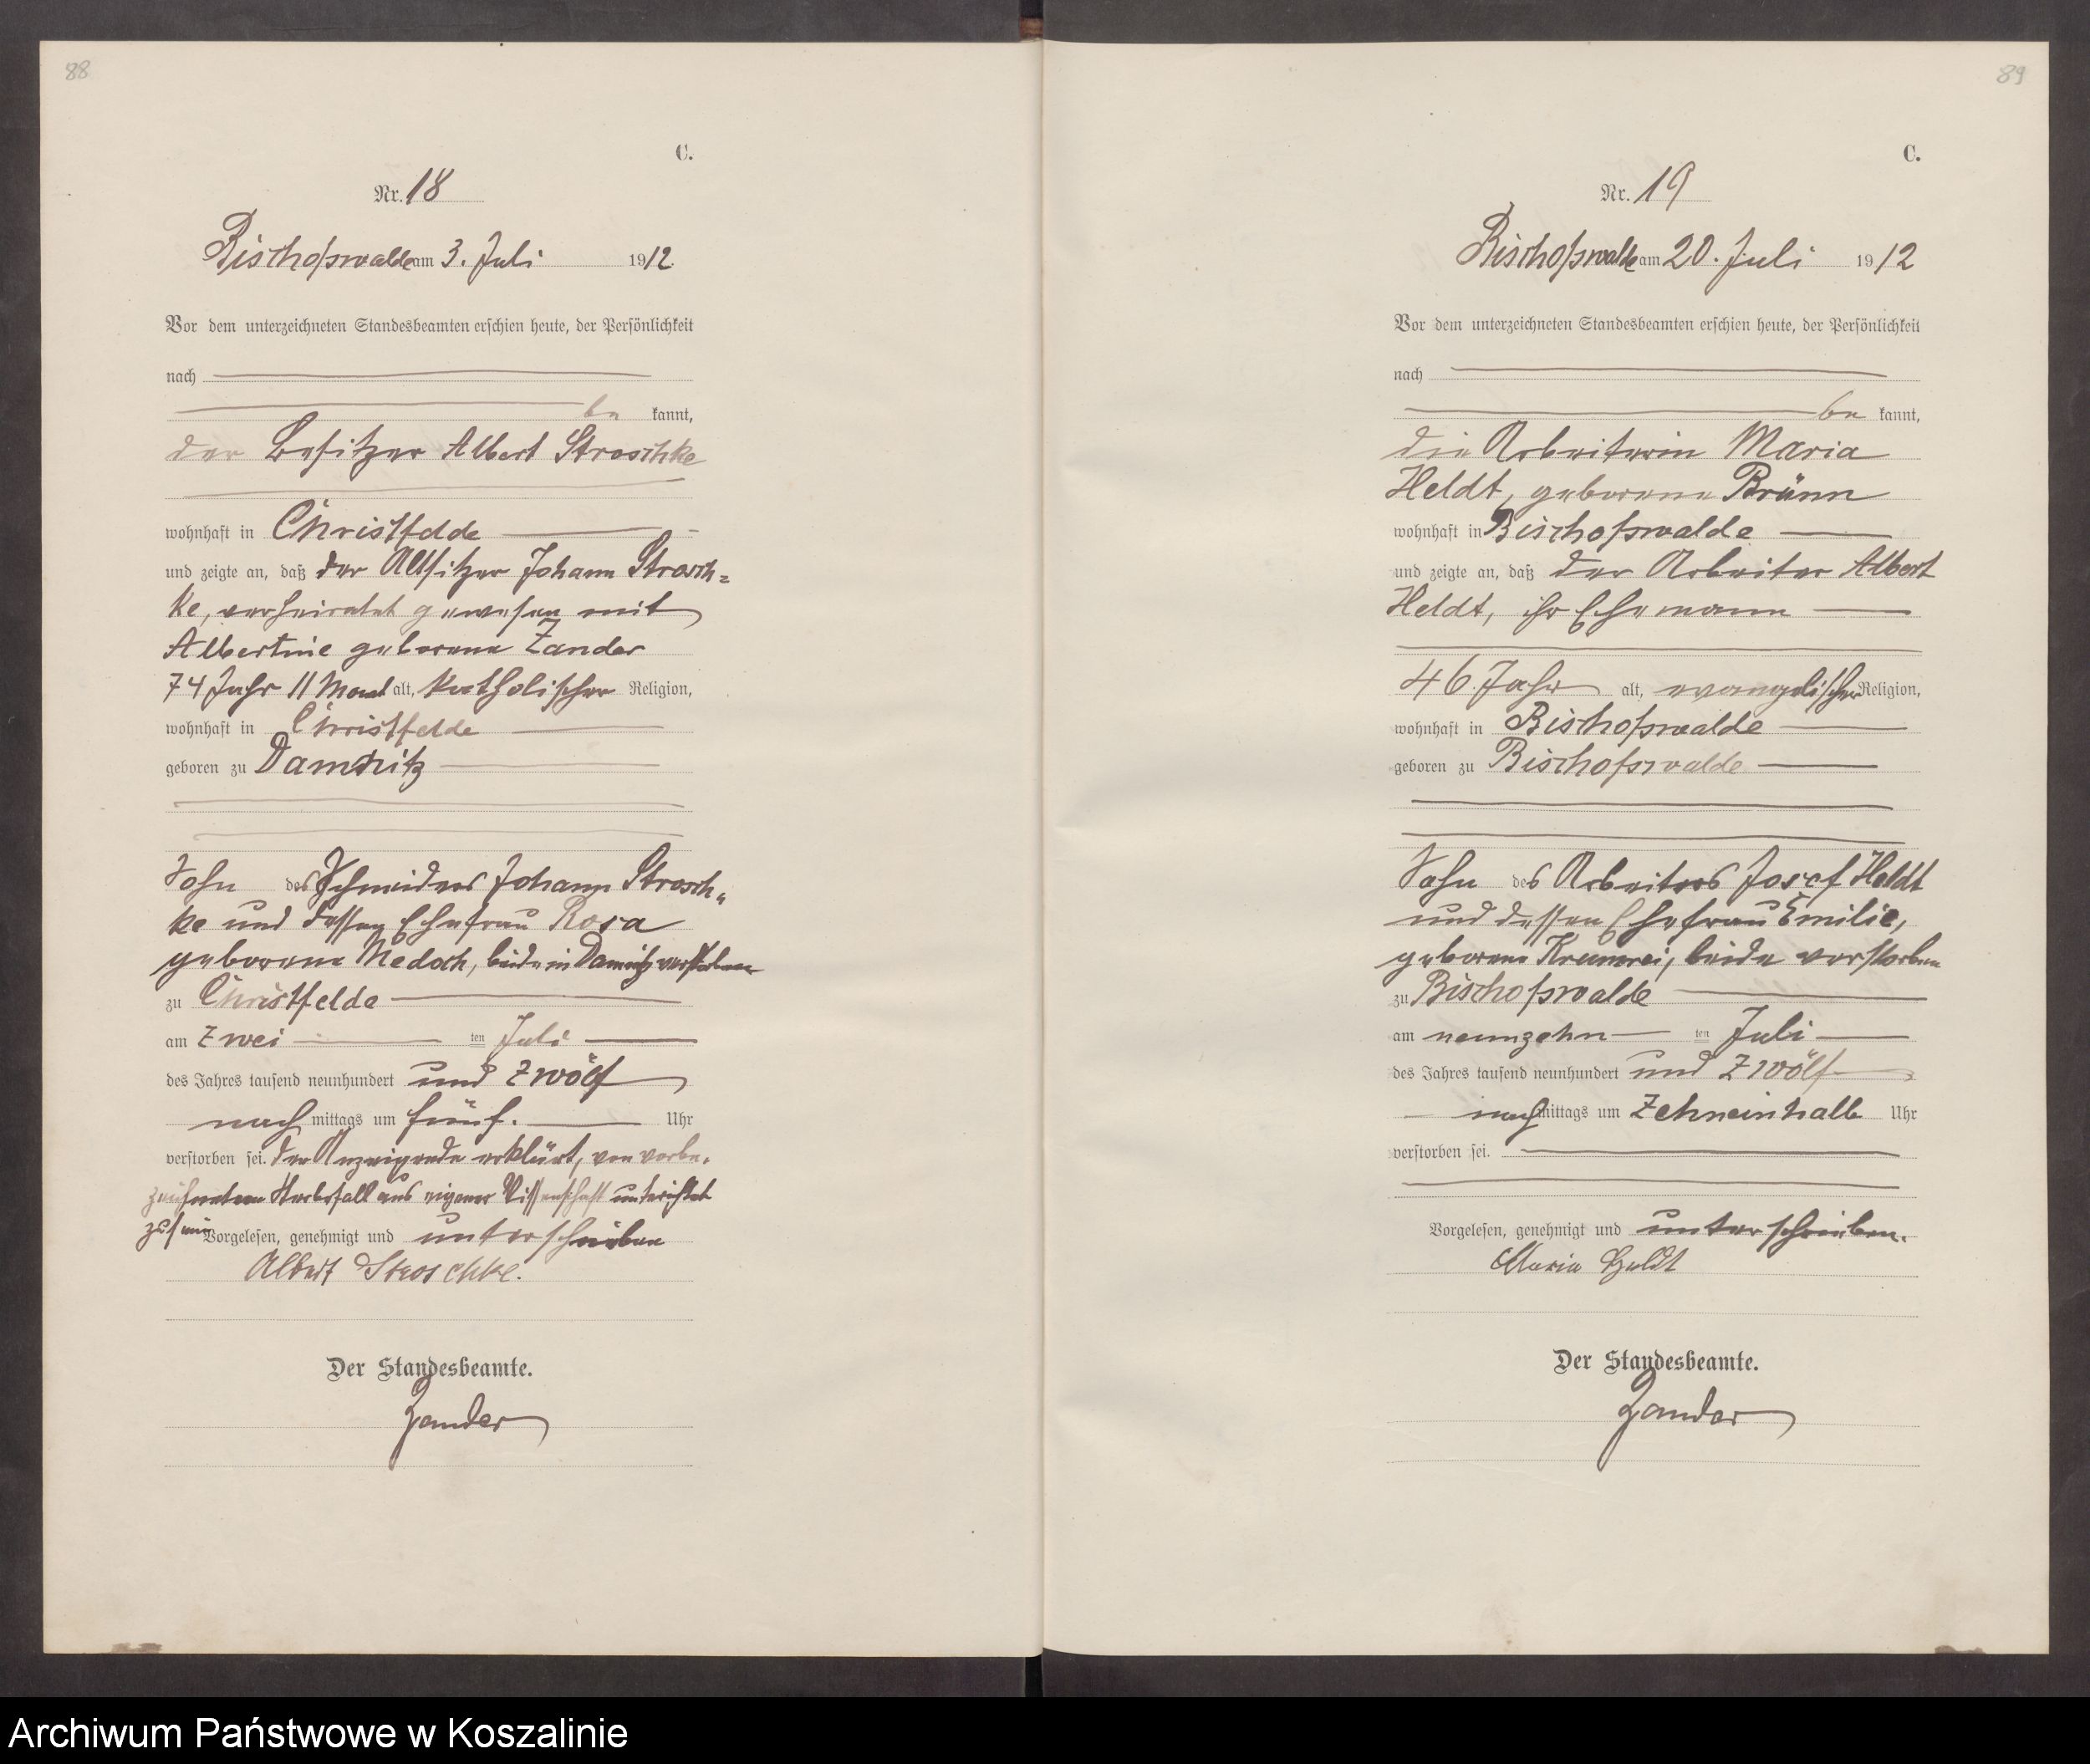 88
C.
Nr. 18
Bischofswalde am 3. Juli 1912.
Vor dem unterzeichneten Standesbeamten erschien heute, der Persönlichkeit
nach
be kannt,
der Besitzer Albert Stroschke
wohnhaft in Christfelde
und zeigte an, daß der Altsitzer Johann Strosch=
ke, verheiratet gewesen mit
Albertine geborene Zander
74 Jahr 11 Monat alt, katholischer Religion,
wohnhaft in Christfelde
geboren zu Damnitz
Sohn des Schneiders Johann Strosch„
ke und dessen Ehefrau Rosa
geborene Medoch, beide in Damnitz verstorben
zu Christfelde
am zwei ten Juli
des Jahres tausend neunhundert und zwölf
nach mittags um fünf. Uhr
verstorben sei. Der Anzeigende erklärt, von vorbe=
zeichnetem Sterbefall aus eigener Wissenschaft unterichtet
zu sein
Vorgelesen, genehmigt und unterschrieben
Albert Stroschke.
Der Standesbeamte.
Zander
89
C.
Nr. 19
Bischofswalde am 20. Juli 1912
Vor dem unterzeichneten Standesbeamten erschien heute, der Persönlichkeit
nach
be kannt,
die Arbeiterin Maria
Heldt, geborene Brünn
wohnhaft in Bischofswalde
und zeigte an, daß der Arbeiter Albert
Heldt, ihr Ehemann
46 Jahr alt, evangelischer Religion,
wohnhaft in Bischofswalde
geboren zu Bischofswalde
Sohn des Arbeiters Josef Heldt
und dessen Ehefrau Emilie,
geborene beide verstorben
zu Bischofswalde
am neunzehn ten Juli
des Jahres tausend neunhundert und zwölf
nach mittags um zehneinhalb Uhr
verstorben sei.
Vorgelesen, genehmigt und unterschrieben.
Maria Heldt
Der Standesbeamte.
Zander
Archiwum Państwowe w Koszalinie